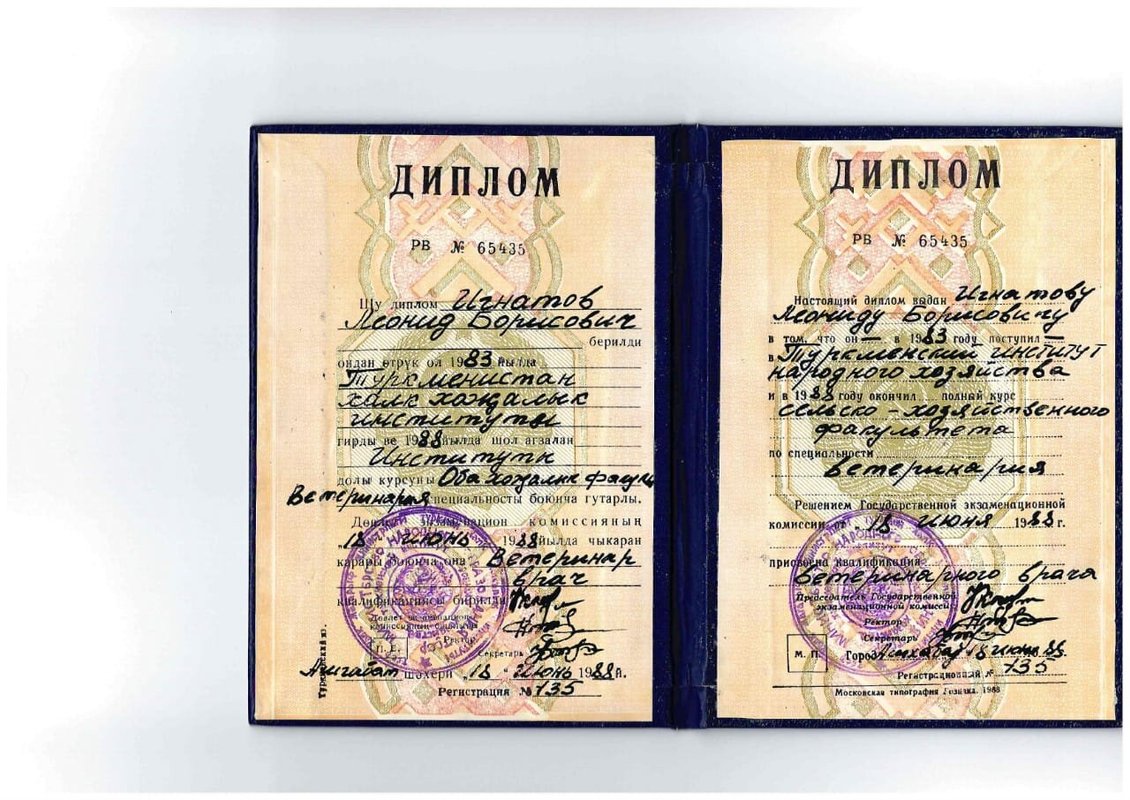 ДИПЛОМ
РВ № 65435
Шу диплом Игнатов
Леонид Борисович
берилди
ондан өтрүк ол 1983 йылда
Туркменистан
халк хожалык
институты
гирды ве 1988 йылда шол агзалан
Институтк
долы курсуны Оба хожалык факул
Ветеринария специальносты боюнча гутарлы.
комиссияның
„18 июнь 1988 йылда чыкаран
карары боюнча она Ветеринар
врач
квалификациясы берилди
Ректор
Секретарь
Ашгабат шәхери „18 " Июнь 1988й.
Регистрация № 735
Туркменский яз.
ДИПЛОМ
РВ № 65435
Настоящий диплом выдан Игнатову
Леониду Борисовичу
в том, что он — в 1983 году поступил —
в Туркменский институт
народного хозяйства
и в 1988 году окончил полный курс
сельско-хозяйственного
факультета
по специальности
Ветеринария
Решением Государственной экзаменационной
комиссии от 18 июня 1988 г.
присвоена квалификация
Ветеринарного врача
Председатель Государственной
экзаменационной комиссии
Ректор
Секретарь
М. П. Город Ашхабад 18 июня 88
Регистрационный № 735
Московская типография Гознака. 1988